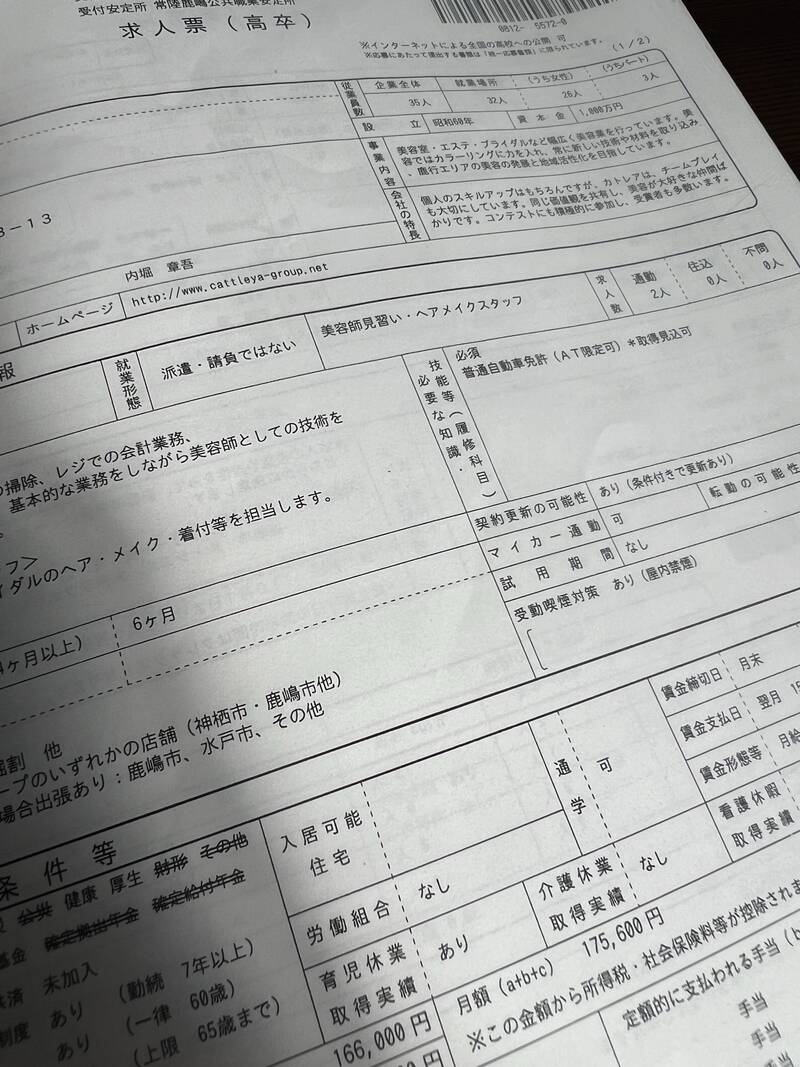 受付安定所 常陸鹿嶋公共職業安定所
求人票（高卒）
0812- 5572-0
※インターネットによる全国の高校への公開 可
※応募にあたって提出する書類は「統一応募書類」に限られています。
(1/2)
従業員数 企業全体 就業場所 （うち女性） （うちパート）
35人 32人 26人 3人
設立 昭和60年 資本金 1,000万円
事業内容 美容室・エステ・ブライダルなど幅広く美容業を行っています。美
容ではカラーリングに力を入れ、常に新しい技術や材料を取り込み
、鹿行エリアの美容の発展と地域活性化を目指しています。
会社の特長 個人のスキルアップはもちろんですが、カトレアは、チームプレイ
も大切にしています。同じ価値観を共有し、美容が大好きな仲間ば
かりです。コンテストにも積極的に参加し、受賞者も多数います。
3-13
内堀 章吾
ホームページ http://www.cattleya-group.net
報
就業形態 派遣・請負ではない
美容師見習い・ヘアメイクスタッフ
求人数 通勤 住込 不問
2人 0人 0人
掃除、レジでの会計業務、
基本的な業務をしながら美容師としての技術を
。
フ＞
イダルのヘア・メイク・着付等を担当します。
必要な知識・技能等（履修科目）
必須
普通自動車免許（ＡＴ限定可）＊取得見込可
契約更新の可能性 あり（条件付きで更新あり）
マイカー通勤 可 転勤の可能性
試用期間 なし
受動喫煙対策 あり（屋内禁煙）
ヶ月以上） 6ヶ月
堀割 他
ープのいずれかの店舗（神栖市・鹿嶋市他）
場合出張あり：鹿嶋市、水戸市、その他
賃金締切日 月末
賃金支払日 翌月 15
賃金形態等 月給
看護休暇取得実績
条件等
公災 健康 厚生 財形 その他
基金 確定拠出年金 確定給付年金
共済 未加入
制度 あり （勤続 7年以上）
あり （一律 60歳）
（上限 65歳まで）
入居可能住宅
通学 可
労働組合 なし
育児休業取得実績 あり
介護休業取得実績 なし
月額（a+b+c） 175,600円
※この金額から所得税・社会保険料等が控除されま
166,000円
定額的に支払われる手当（b
手当
手当
手当